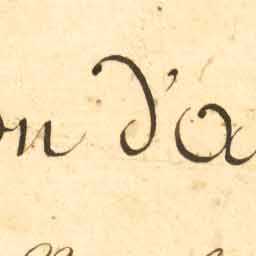 on d'a